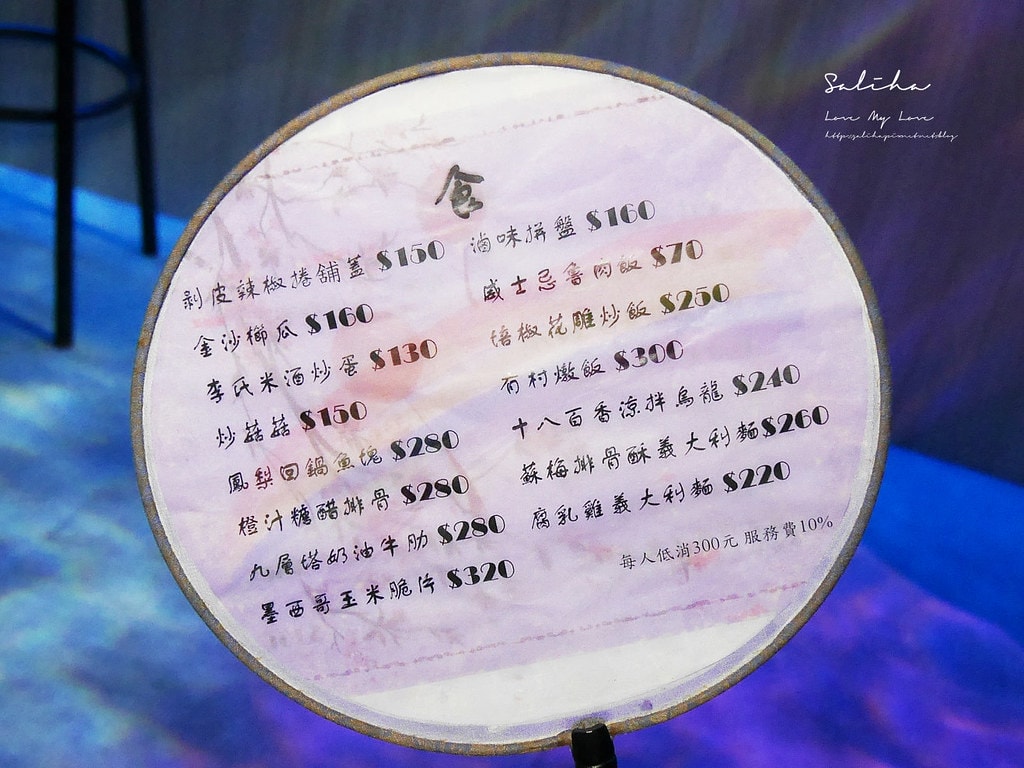 Saliha
Love My Love
食
剝皮辣椒捲舖蓋 $150
金沙櫛瓜 $160
李氏米酒炒蛋 $130
炒菇菇 $150
鳳梨回鍋魚塊 $280
橙汁糖醋排骨 $280
九層塔奶油牛肋 $280
墨西哥玉米脆片 $320
滷味拼盤 $160
威士忌魯肉飯 $70
培椒花雕炒飯 $250
有村燉飯 $300
十八百香涼拌烏龍 $240
蘇梅排骨酥義大利麵 $260
腐乳雞義大利麵 $220
每人低消300元 服務費10%